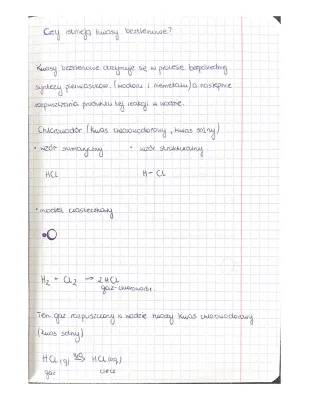 Czy istnieją kwasy beztlenowe?
Kwasy beztlenowe otrzymuje się w procesie bezpośredniej
syntezy pierwiastków (wodoru i niemetalu) a następnie
rozpuszczania produktu tej reakcji w wodzie.
Chlorowodór (kwas chlorowodorowy, kwas solny)
• wzór sumaryczny • wzór strukturalny
HCl H-Cl
• model cząsteczkowy
H₂ + Cl₂ → 2HCl
gaz-chlorowodór
Ten gaz rozpuszczony w wodzie tworzy kwas chlorowodorowy
(kwas solny)
HCl(g) → HCl(aq)
gaz ciecz